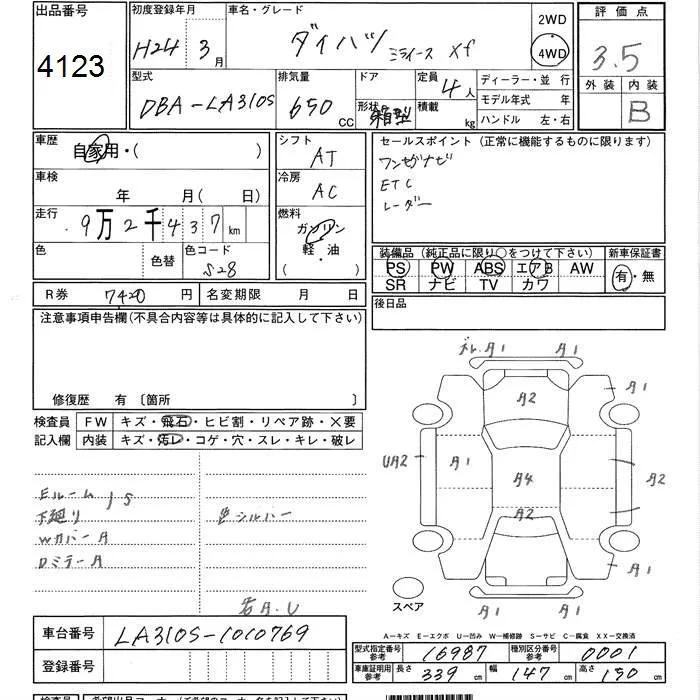 出品番号
4123
初度登録年月
H24 3月
車名・グレード
ダイハツ ミライース Xf
2WD
4WD
評価点
3.5
外装 内装
B
型式
DBA-LA310S
排気量
650 CC
ドア
形状 箱型
定員 4人
積載 kg
ディーラー・並行
モデル年式 年
ハンドル 左・右
車歴
自家用・( )
シフト
AT
セールスポイント（正常に機能するものに限ります）
ワンセグナビ
ETC
レーダー
車検
年 月(日)
冷房
AC
走行
9万2千437km
燃料
ガソリン
軽・油
( ・ )
色
色替
色コード
S28
装備品（純正品に限り○をつけて下さい）
新車保証書
PS PW ABS エアB AW
SR ナビ TV カワ
有・無
R券 7420円
名変期限 月 日
後日品
注意事項申告欄(不具合内容等は具体的に記入して下さい)
修復歴 有〔箇所 〕
検査員
記入欄
FW キズ・飛石・ヒビ割・リペア跡・X要
内装 キズ・汚レ・コゲ・穴・スレ・キレ・破レ
Eルーム
下廻り
S
WカバーA
DミラーA
色シルバー
A1 A1
A2
A1
UA2
A1
A4
A2
A2
A1
A1 A1
スペア
A-キズ E-エクボ U-凹み W-補修跡 S-サビ C-腐食 XX-交換済
車台番号
LA310S-1010769
登録番号
型式指定番号
参考
16987
種別区分番号
参考
0001
車庫証明用
参考
長さ 339cm
幅 147cm
高さ 150cm